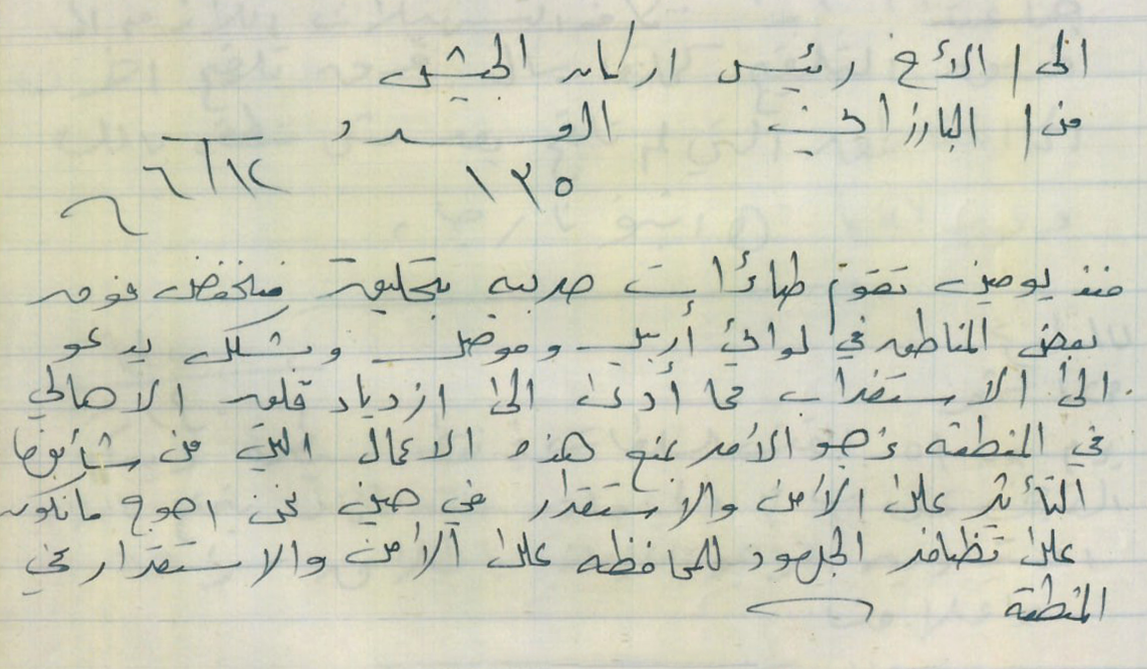 الى / الأخ رئيس اركان الجيش
من / البارزاني العدد
١٣٥ ٦/١٢
منذ يومين تقوم طائرات حربيه بتحليق منخفض فوق
بعض المناطق في لوائي أربيل وموصل وبشكل يدعو
الى الاستغراب مما أدى الى ازدياد قلق الاهالي
في المنطقه نرجو الأمر بمنع هذه الاعمال التي من شأنها
التأثير على الأمن والاستقرار في حين نحن احوج مانكون
على تظافر الجهود للمحافظه على الأمن والاستقرار في
المنطقة